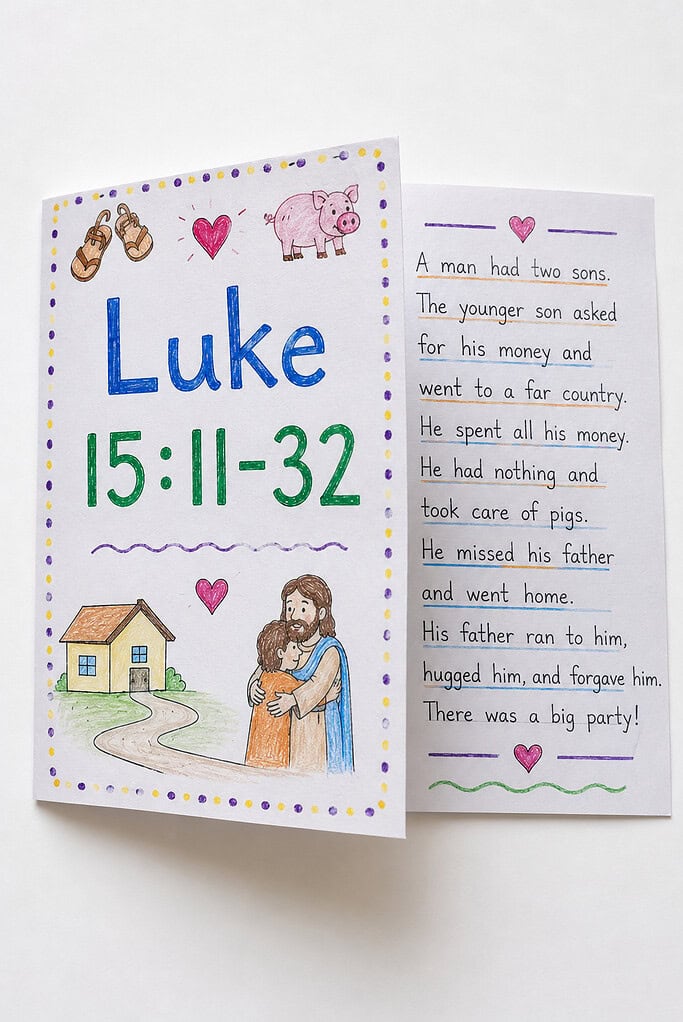 Luke
15:11-32
A man had two sons.
The younger son asked
for his money and
went to a far country.
He spent all his money.
He had nothing and
took care of pigs.
He missed his father
and went home.
His father ran to him,
hugged him, and forgave him.
There was a big party!